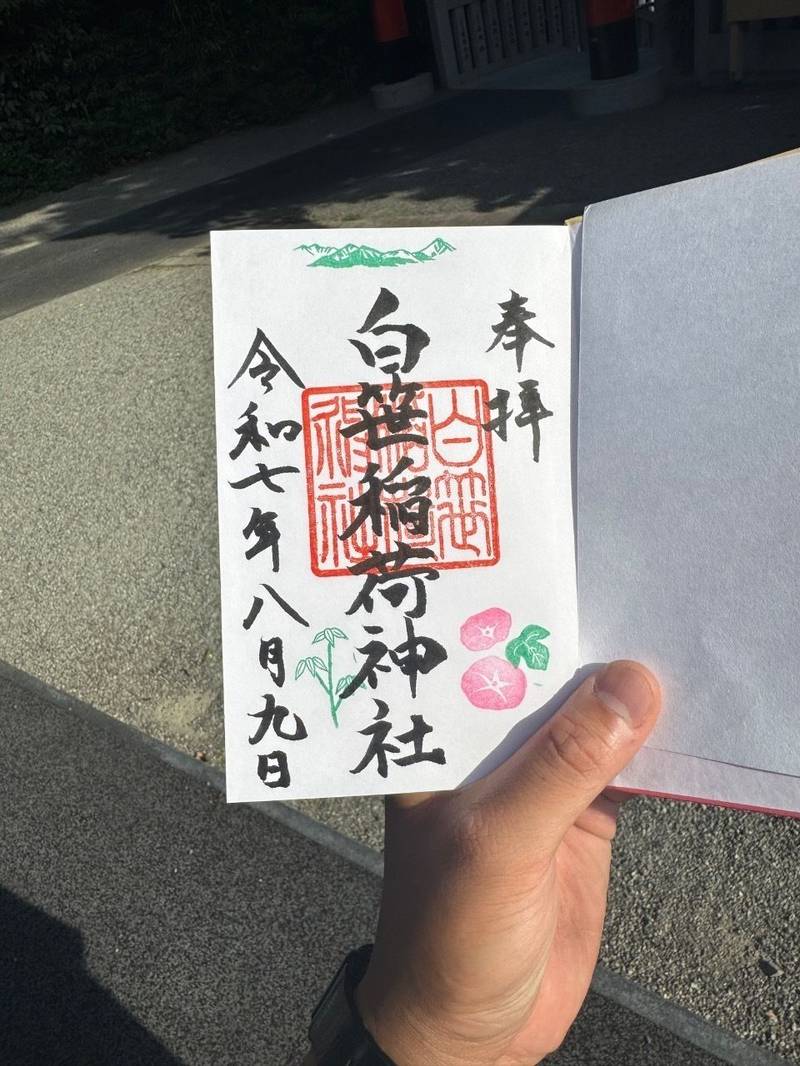 奉拝
白笹稲荷神社
令和七年八月九日
白笹
稲荷
神社